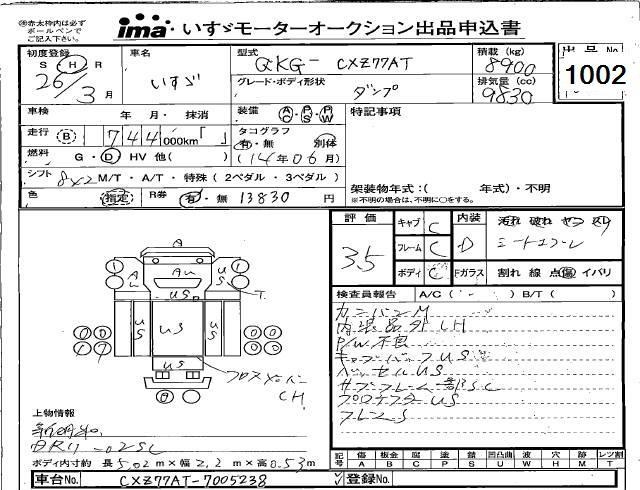 ※赤太枠内は必ず
ボールペンで
ご記入下さい。
ima いすゞモーターオークション出品申込書
初度登録 車名 型式 積載 (kg) 出品No.
S・H・R いすゞ QKG-CXZ77AT 8900 1002
26/3月 グレード・ボディ形状 ダンプ 排気量 (cc) 9830
車検 年 月・ 抹消 装備 AC PS PW 特記事項
走行 B 744,000km「 」 タコグラフ 有・無 別体
燃料 G・D・HV 他( ) (14年06月)
シフト 8x2 M/T・A/T・特殊(2ペダル・3ペダル)
架装物年式:( 年式)・不明
色 指定 R券 有・無 13830円 ※不明の場合は、不明に○をする。
評価 3.5 キャブ C 内装 D 汚れ 破れ ヤコゲ スリ
フレーム C シートコゲ
ボディ C Fガラス 割れ 線 点 傷 イバリ
検査員報告 A/C( ) B/T( )
内装品外しH
P/W不良
キャブバックUS
ベッセルUS
サブフレーム一部SC
US
A
AU
AU
US
US
T
US
US
US
US
クロスメンバー
CH
上物情報
新明和
DR11-02SC
ボディ内寸約 長5.02m×幅2.2m×高0.53m
記号 傷 A 板金 B 腐 C 塗 P 錆 S 凹凸曲 U 波 W 穴 H 跡 M レツ割 T
車台No. CXZ77AT-7005238 登録No.